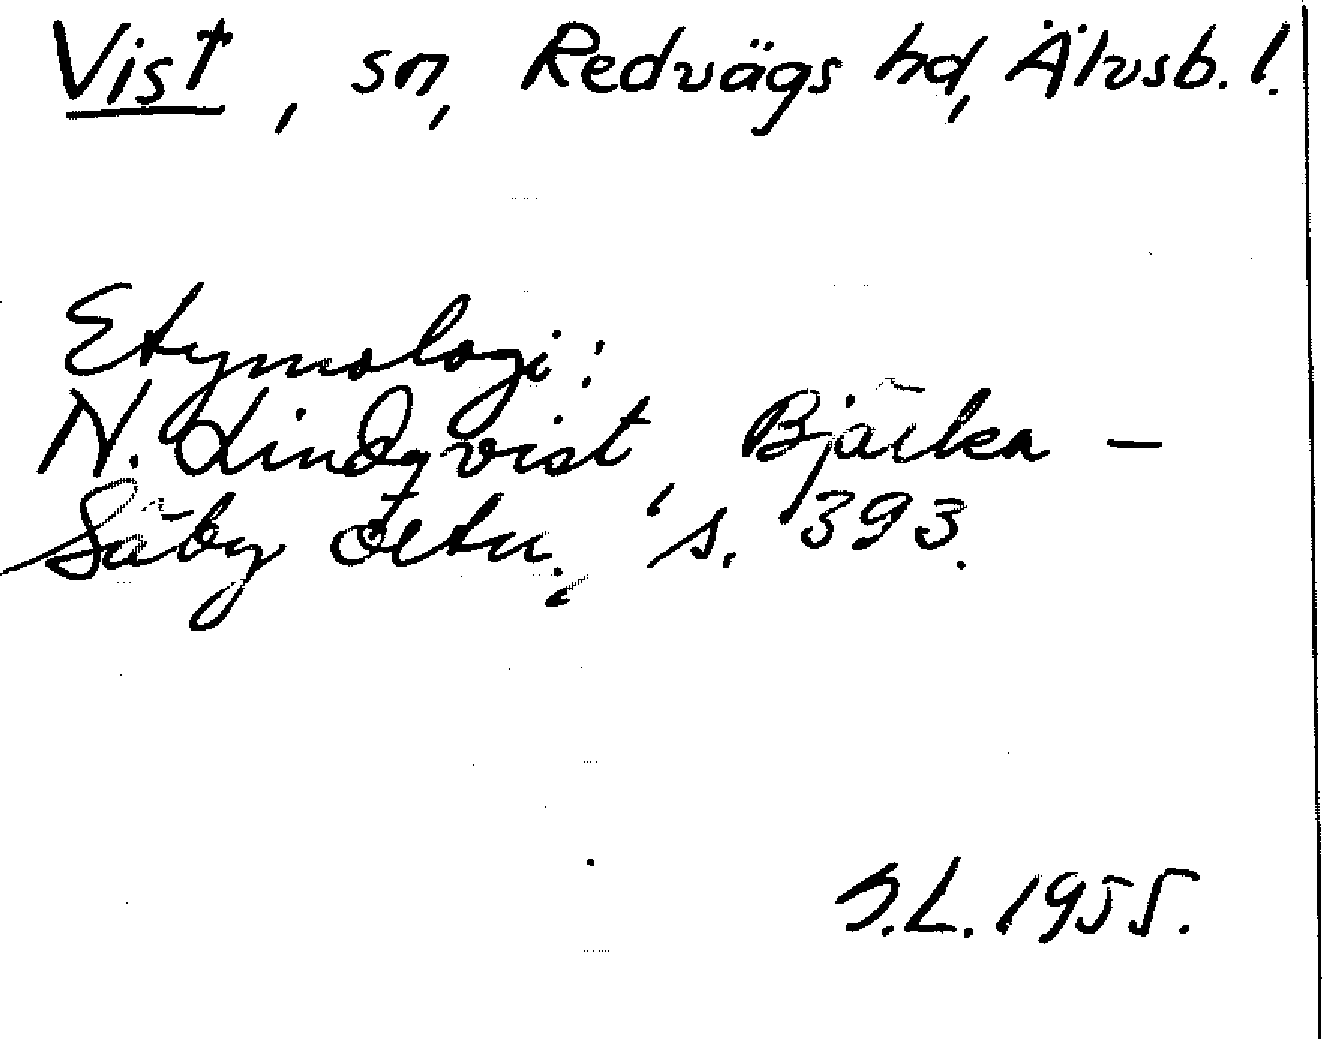 Vist, sn, Redvägs hd, Älvsb. l.
Etymologi:
N. Lindqvist, Bjärka –
Säby ortn., s. 393.
S.L. 1955.